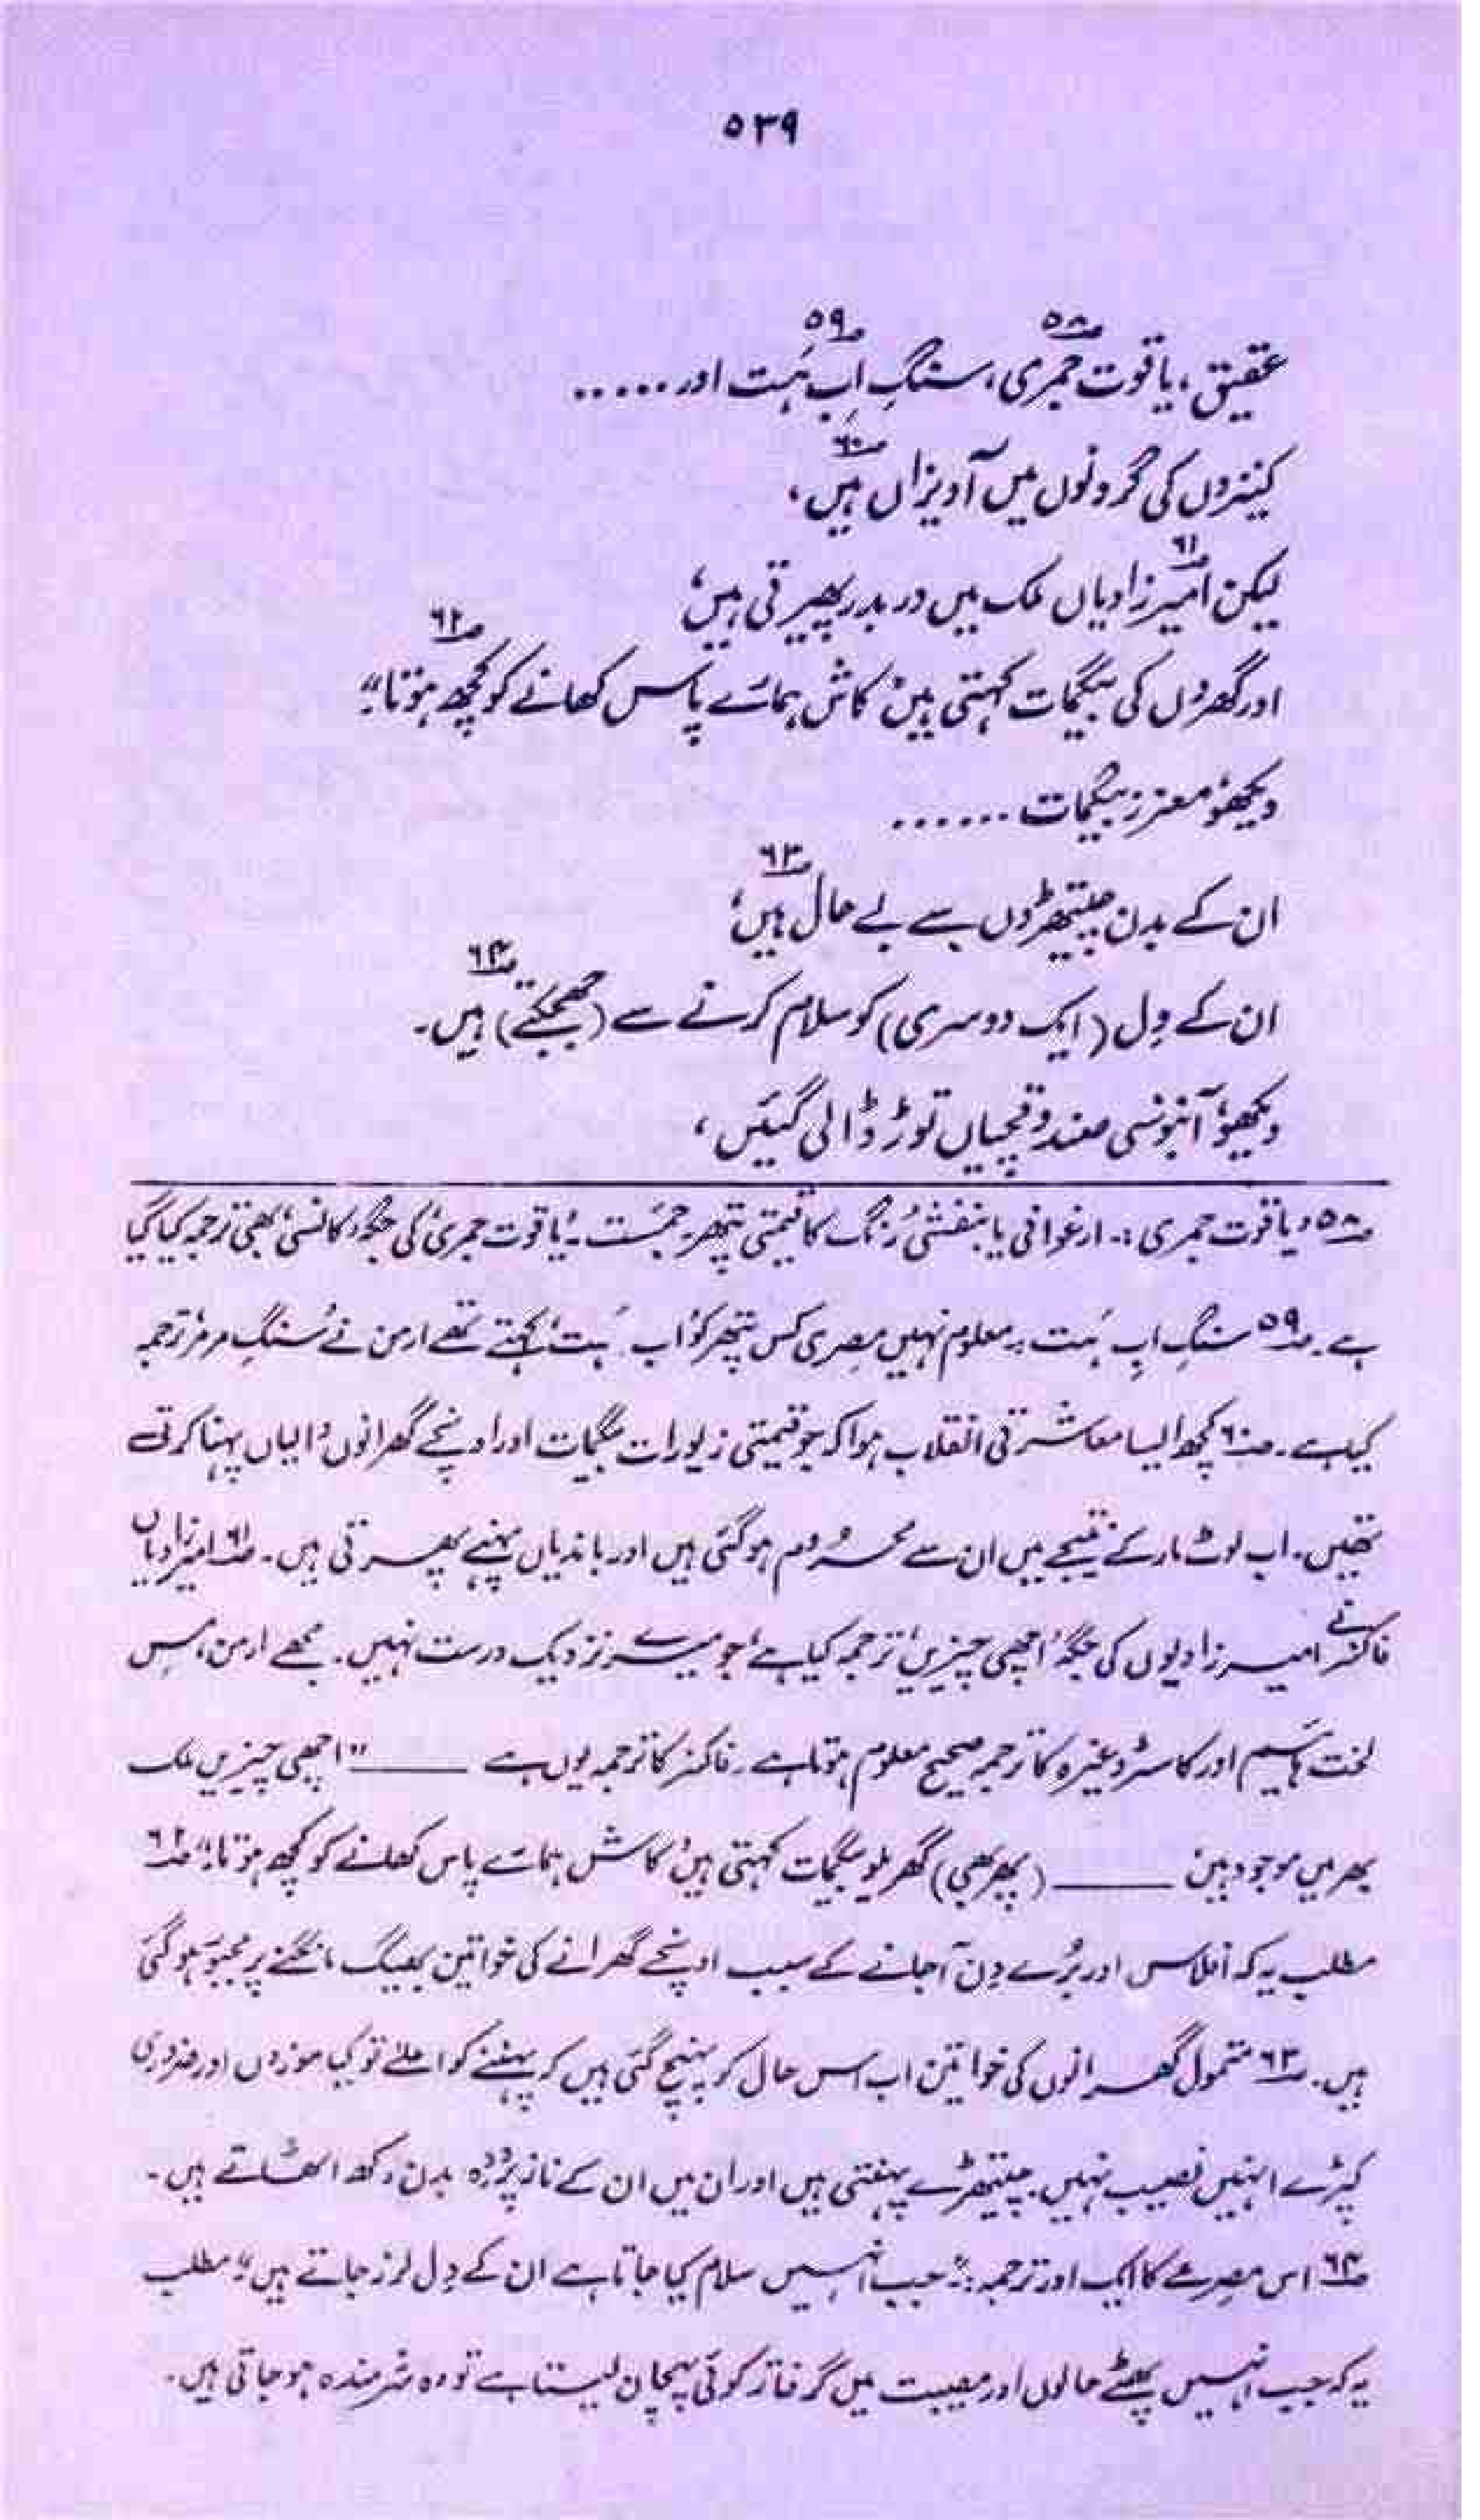 ۵۳۹
عقیق، یاقوت جمری، سنگِ اِب ہَت اور.....
۵۸ ۵۹
کنیزوں کی گردنوں میں آویزاں ہیں،
۶۰
لیکن امیرزادیاں ملک میں در بدر پھرتی ہیں،
۶۱
اور گھروں کی بیگمات کہتی ہیں "کاش ہمارے پاس کھانے کو کچھ ہوتا"۔
۶۲
دیکھو، معزز بیگمات ......
ان کے بدن چیتھڑوں سے بے حال ہیں،
۶۳
ان کے دِل (ایک دوسری) کو سلام کرنے سے (جھجکتے) ہیں۔
۶۴
دیکھو، آبنوسی صندوقچیاں توڑ ڈالی گئیں،
۵۸؎ یاقوت جمری :۔ ارغوانی یا بنفشئی رنگ کا قیمتی پتھر۔ جمَست۔ 'یاقوت جمری' کی جگہ 'کانسی' بھی ترجمہ کیا گیا
ہے۔ ۵۹؎ سنگِ اِب ہَت :۔ معلوم نہیں مصری کس پتھر کو 'اب ہَت' کہتے تھے ارمن نے 'سنگِ مرمر' ترجمہ
کیا ہے۔ ۶۰؎ کچھ ایسا معاشرتی انقلاب ہوا کہ جو قیمتی زیورات بیگمات اور اونچے گھرانوں والیاں پہنا کرتی
تھیں۔ اب لوٹ مار کے نتیجے میں ان سے محروم ہو گئی ہیں اور باندیاں پہنے پھرتی ہیں۔ ۶۱؎ امیرزادیاں
فاکنر نے امیرزادیوں کی جگہ 'اچھی چیزیں' ترجمہ کیا ہے، جو میرے نزدیک درست نہیں۔ مجھے ارمن، مِس
لخت ہائیم اور کاسٹر وغیرہ کا ترجمہ صحیح معلوم ہوتا ہے۔ فاکنر کا ترجمہ یوں ہے ——— "اچھی چیزیں ملک
بھر میں موجود ہیں ——— (پھر بھی) گھریلو بیگمات کہتی ہیں، کاش ہمارے پاس کھانے کو کچھ ہوتا"۔ ۶۲؎
مطلب یہ کہ افلاس اور بُرے دِن آجانے کے سبب اونچے گھرانے کی خواتین بھیک مانگنے پر مجبور ہو گئی
ہیں۔ ۶۳؎ متمول گھرانوں کی خواتین اب اس حال کو پہنچ گئی ہیں کہ پہننے کو اعلےٰ تو کیا موزوں اور ضروری
کپڑے انہیں نصیب نہیں، چیتھڑے پہنتی ہیں اور ان میں ان کے ناز پرَوردہ بدن دکھ اٹھاتے ہیں۔
۶۴؎ اس مصرعے کا ایک اور ترجمہ :۔ "جب انہیں سلام کیا جاتا ہے ان کے دِل لرز جاتے ہیں" مطلب
یہ کہ جب انہیں پھٹے حالوں اور مصیبت میں گرفتار کوئی پہچان لیتا ہے تو وہ شرمندہ ہو جاتی ہیں۔